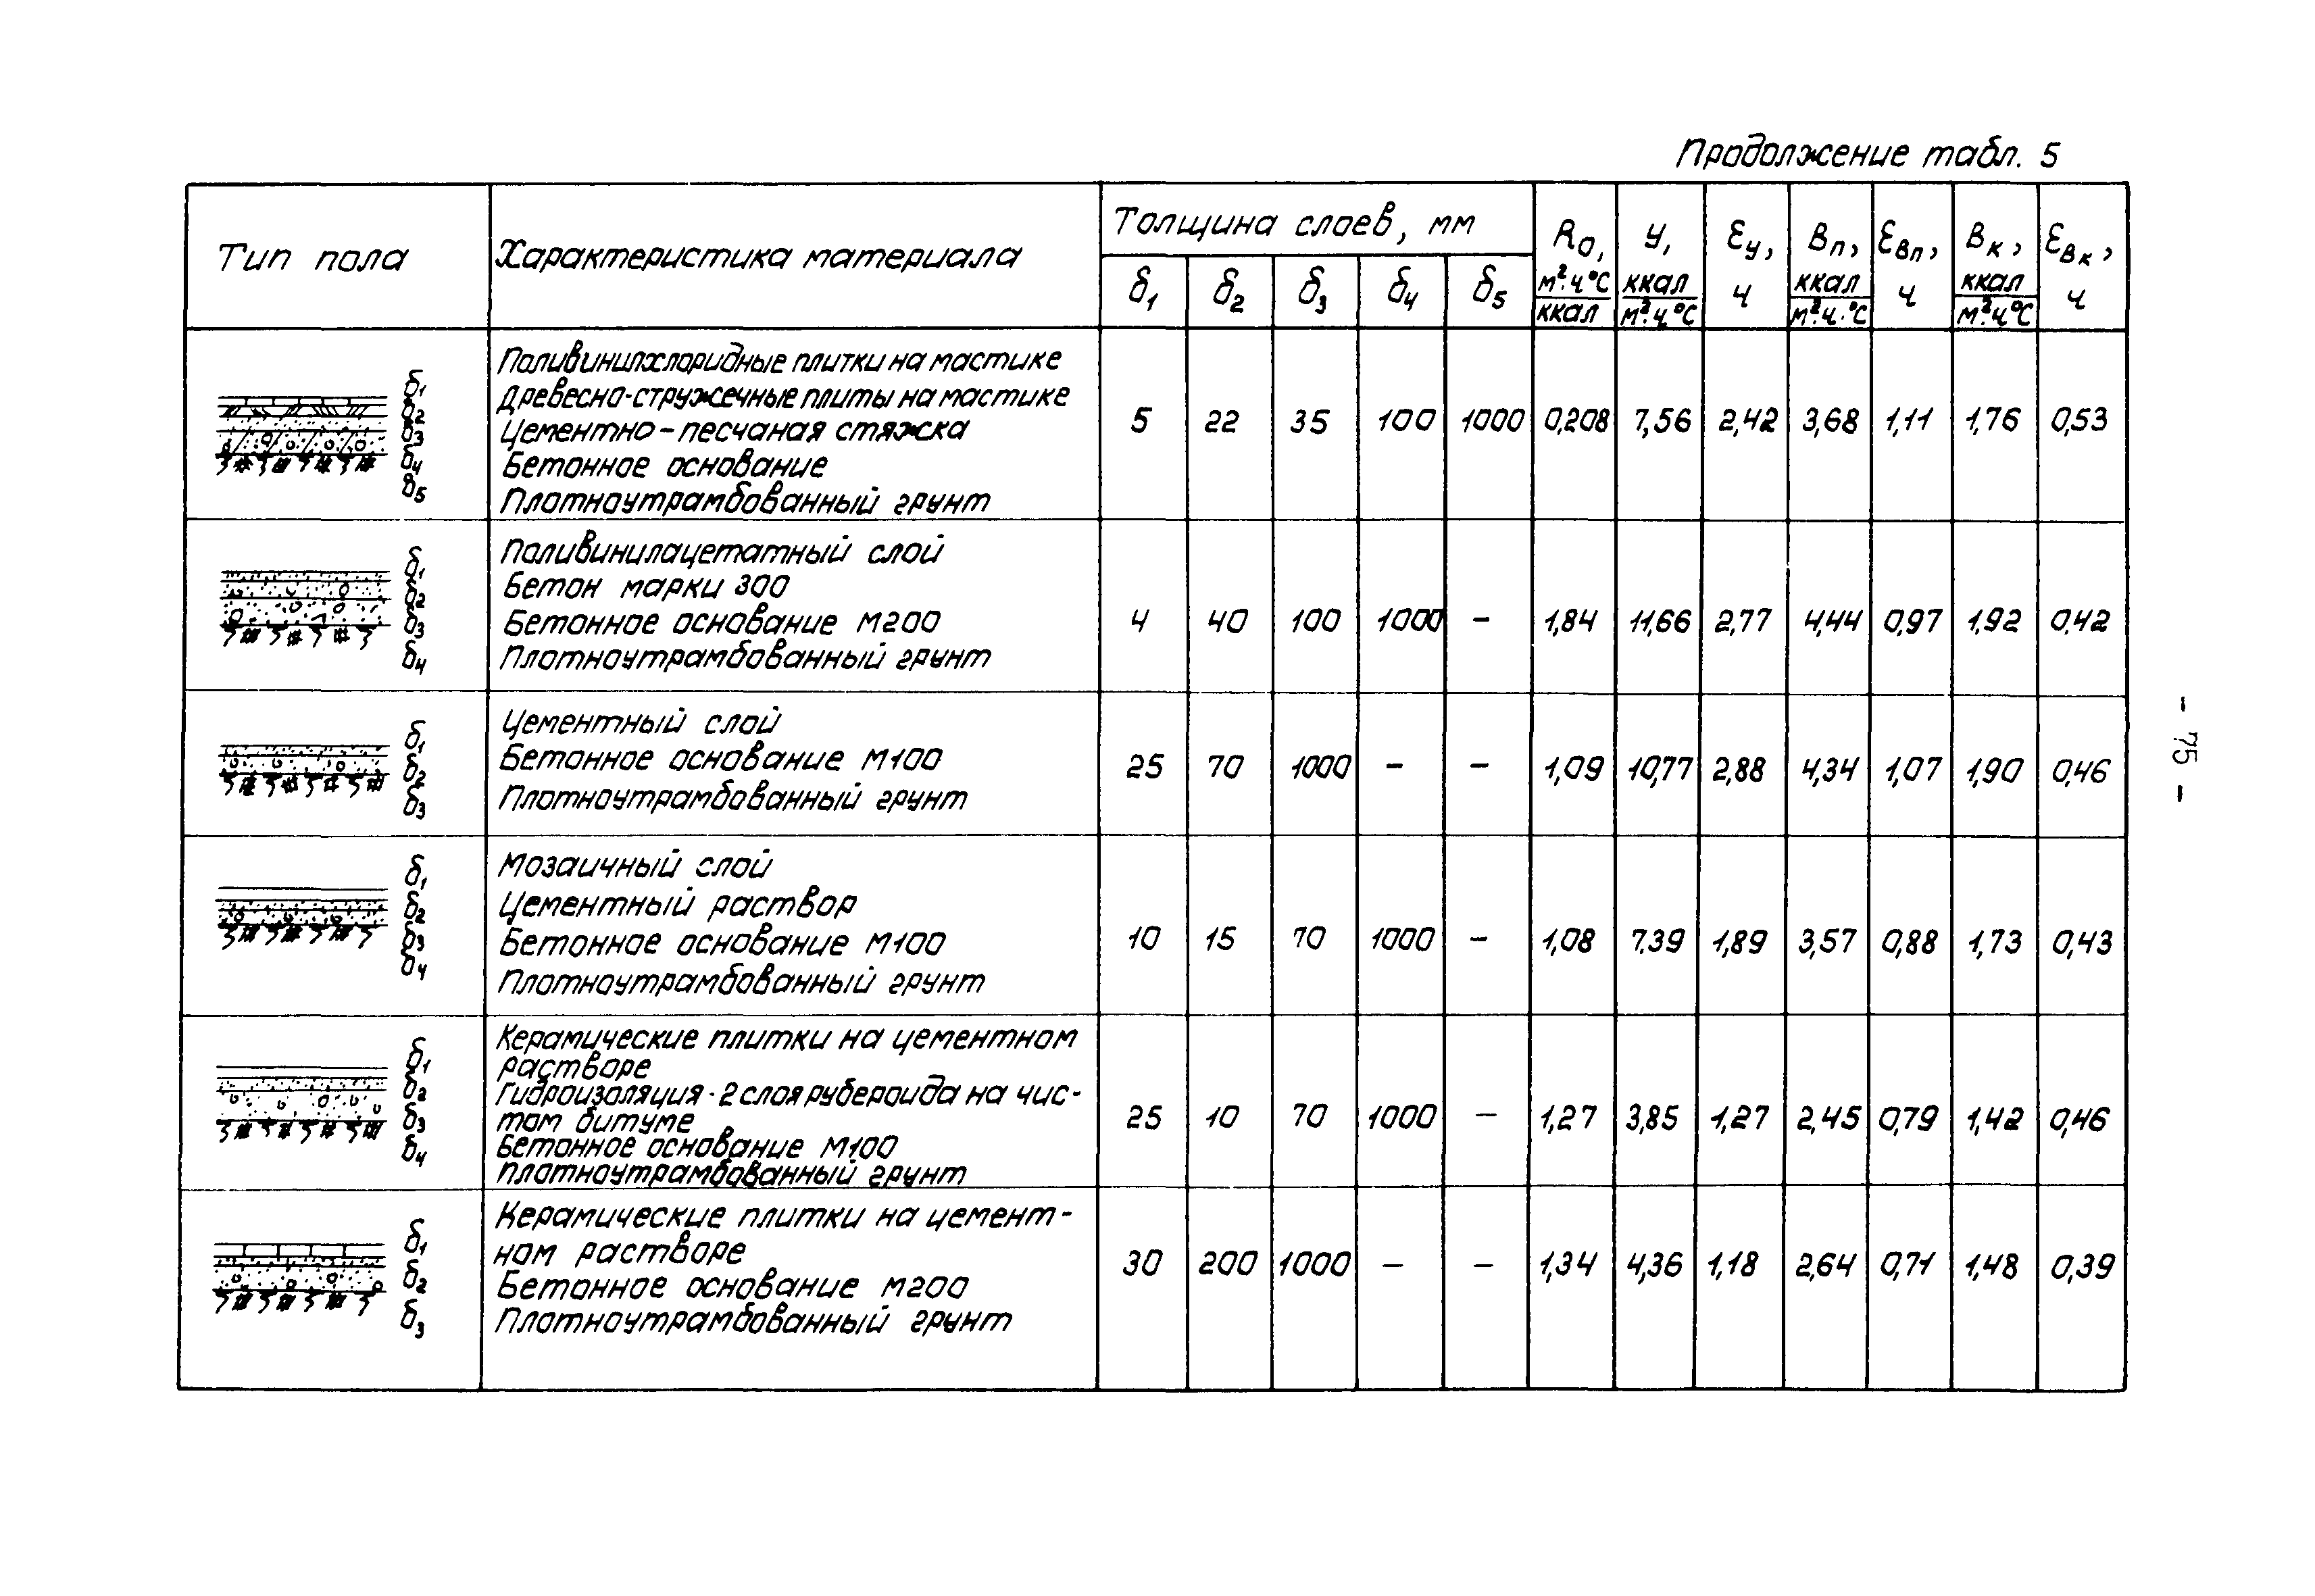 Продолжение табл. 5
Тип пола
Характеристика материала
Толщина слоев, мм
δ1 δ2 δ3 δ4 δ5
R0, м²·ч·°С/ккал
У, ккал/м²·ч·°С
Ɛу, ч
Вп, ккал/м²·ч·°С
ƐВп, ч
Вк, ккал/м²·ч·°С
ƐВк, ч
δ1
δ2
δ3
δ4
δ5
Поливинилхлоридные плитки на мастике
Древесно-стружечные плиты на мастике
Цементно-песчаная стяжка
Бетонное основание
Плотноутрамбованный грунт
5 22 35 100 1000 0,208 7,56 2,42 3,68 1,11 1,76 0,53
δ1
δ2
δ3
δ4
Поливинилацетатный слой
Бетон марки 300
Бетонное основание М200
Плотноутрамбованный грунт
4 40 100 1000 – 1,84 11,66 2,77 4,44 0,97 1,92 0,42
δ1
δ2
δ3
Цементный слой
Бетонное основание М100
Плотноутрамбованный грунт
25 70 1000 – – 1,09 10,77 2,88 4,34 1,07 1,90 0,46
δ1
δ2
δ3
δ4
Мозаичный слой
Цементный раствор
Бетонное основание М100
Плотноутрамбованный грунт
10 15 70 1000 – 1,08 7.39 1,89 3,57 0,88 1,73 0,43
δ1
δ2
δ3
δ4
Керамические плитки на цементном
растворе
Гидроизоляция - 2 слоя рубероида на чис-
том битуме
Бетонное основание М100
Плотноутрамбованный грунт
25 10 70 1000 – 1,27 3,85 1,27 2,45 0,79 1,42 0,46
δ1
δ2
δ3
Керамические плитки на цемент-
ном растворе
Бетонное основание М200
Плотноутрамбованный грунт
30 200 1000 – – 1,34 4,36 1,18 2,64 0,71 1,48 0,39
- 75 -